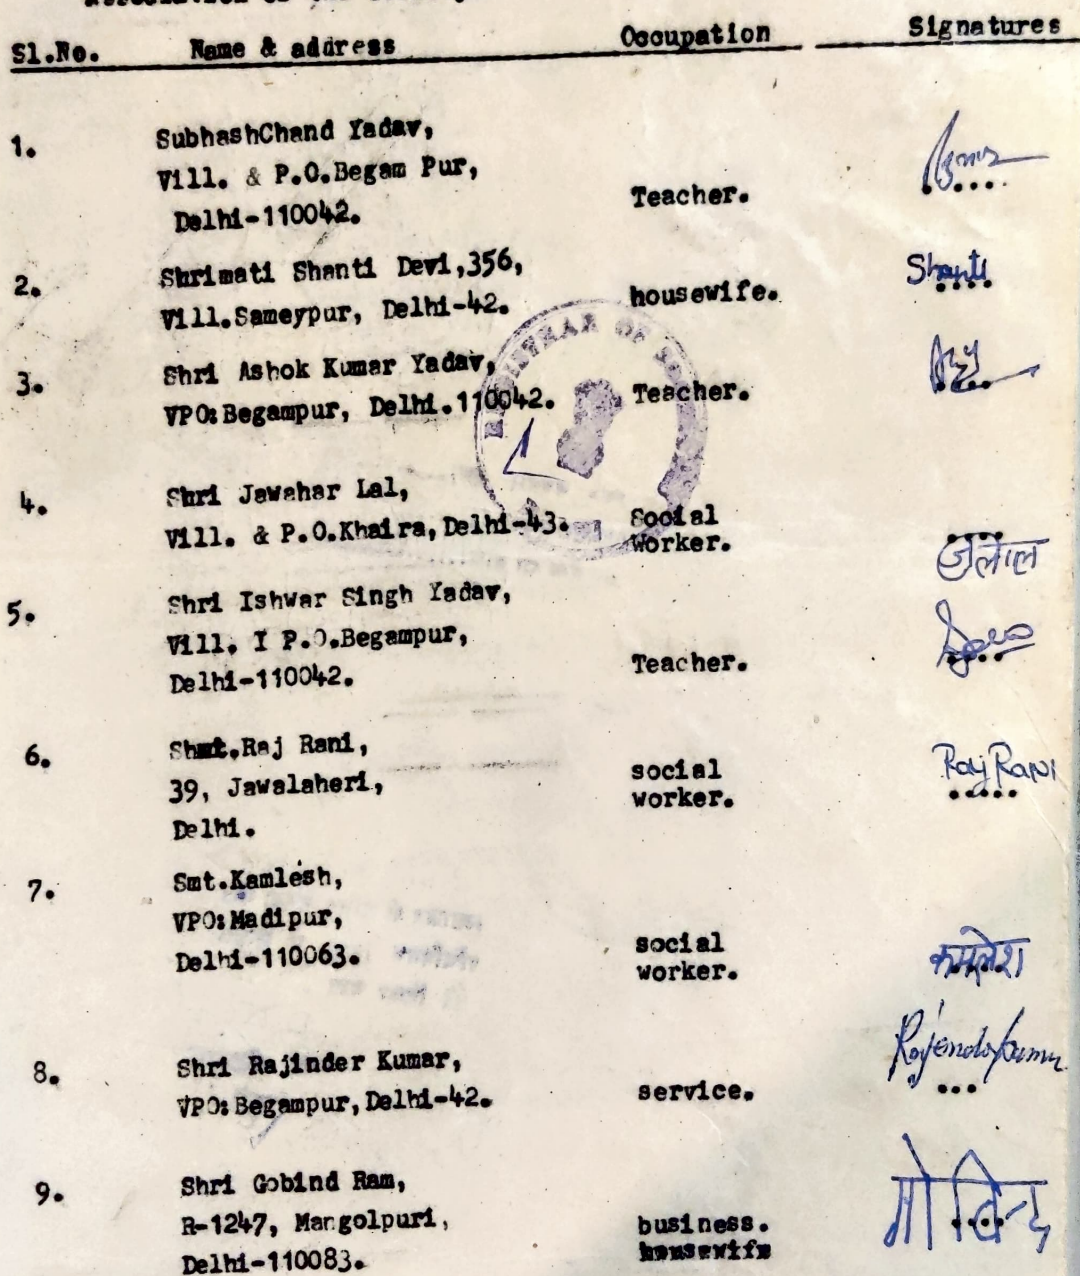 Sl.No. Name & address Occupation Signatures
1. SubhashChand Yadav,
Vill. & P.O.Begam Pur,
Delhi-110042. Teacher.
2. Shrimati Shanti Devi,356, Shanti
Vill.Sameypur, Delhi-42. housewife.
REGISTRAR OF
3. Shri Ashok Kumar Yadav,
VPO:Begampur, Delhi.110042. Teacher.
4. Shri Jawahar Lal,
Vill. & P.O.Khaira,Delhi-43. Social
Worker.
जलाल
5. Shri Ishwar Singh Yadav,
Vill. I P.O.Begampur,
Delhi-110042. Teacher.
6. Shmt.Raj Rani,
39, Jawalaheri, social Raj Rani
Delhi. worker.
7. Smt.Kamlesh,
VPO:Madipur,
Delhi-110063. social
worker. कमलेश
8. Shri Rajinder Kumar,
VPO:Begampur,Delhi-42. service.
9. Shri Gobind Ram,
R-1247, Mangolpuri, business. गोविन्द
Delhi-110083. housewife